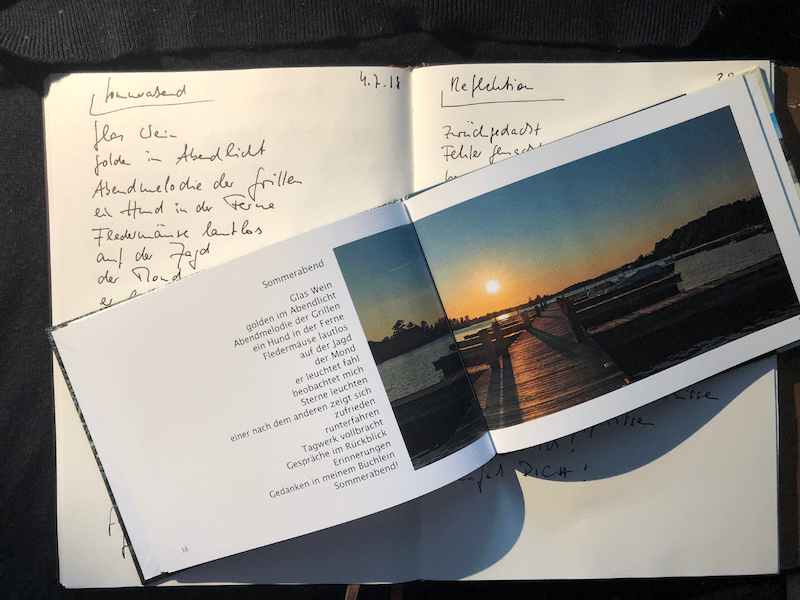 Sommerabend
4.7.18
Glas Wein
golden im Abendlicht
Abendmelodie der Grillen
ein Hund in der Ferne
Fledermäuse lautlos
auf der Jagd
der Mond
er
Reflektion
Zurückgedacht
Fehler gemacht
DICH!
Sommerabend
Glas Wein
golden im Abendlicht
Abendmelodie der Grillen
ein Hund in der Ferne
Fledermäuse lautlos
auf der Jagd
der Mond
er leuchtet fahl
beobachtet mich
Sterne leuchten
einer nach dem anderen zeigt sich
zufrieden
runterfahren
Tagwerk vollbracht
Gespräche im Rückblick
Erinnerungen
Gedanken in meinem Büchlein
Sommerabend!
16